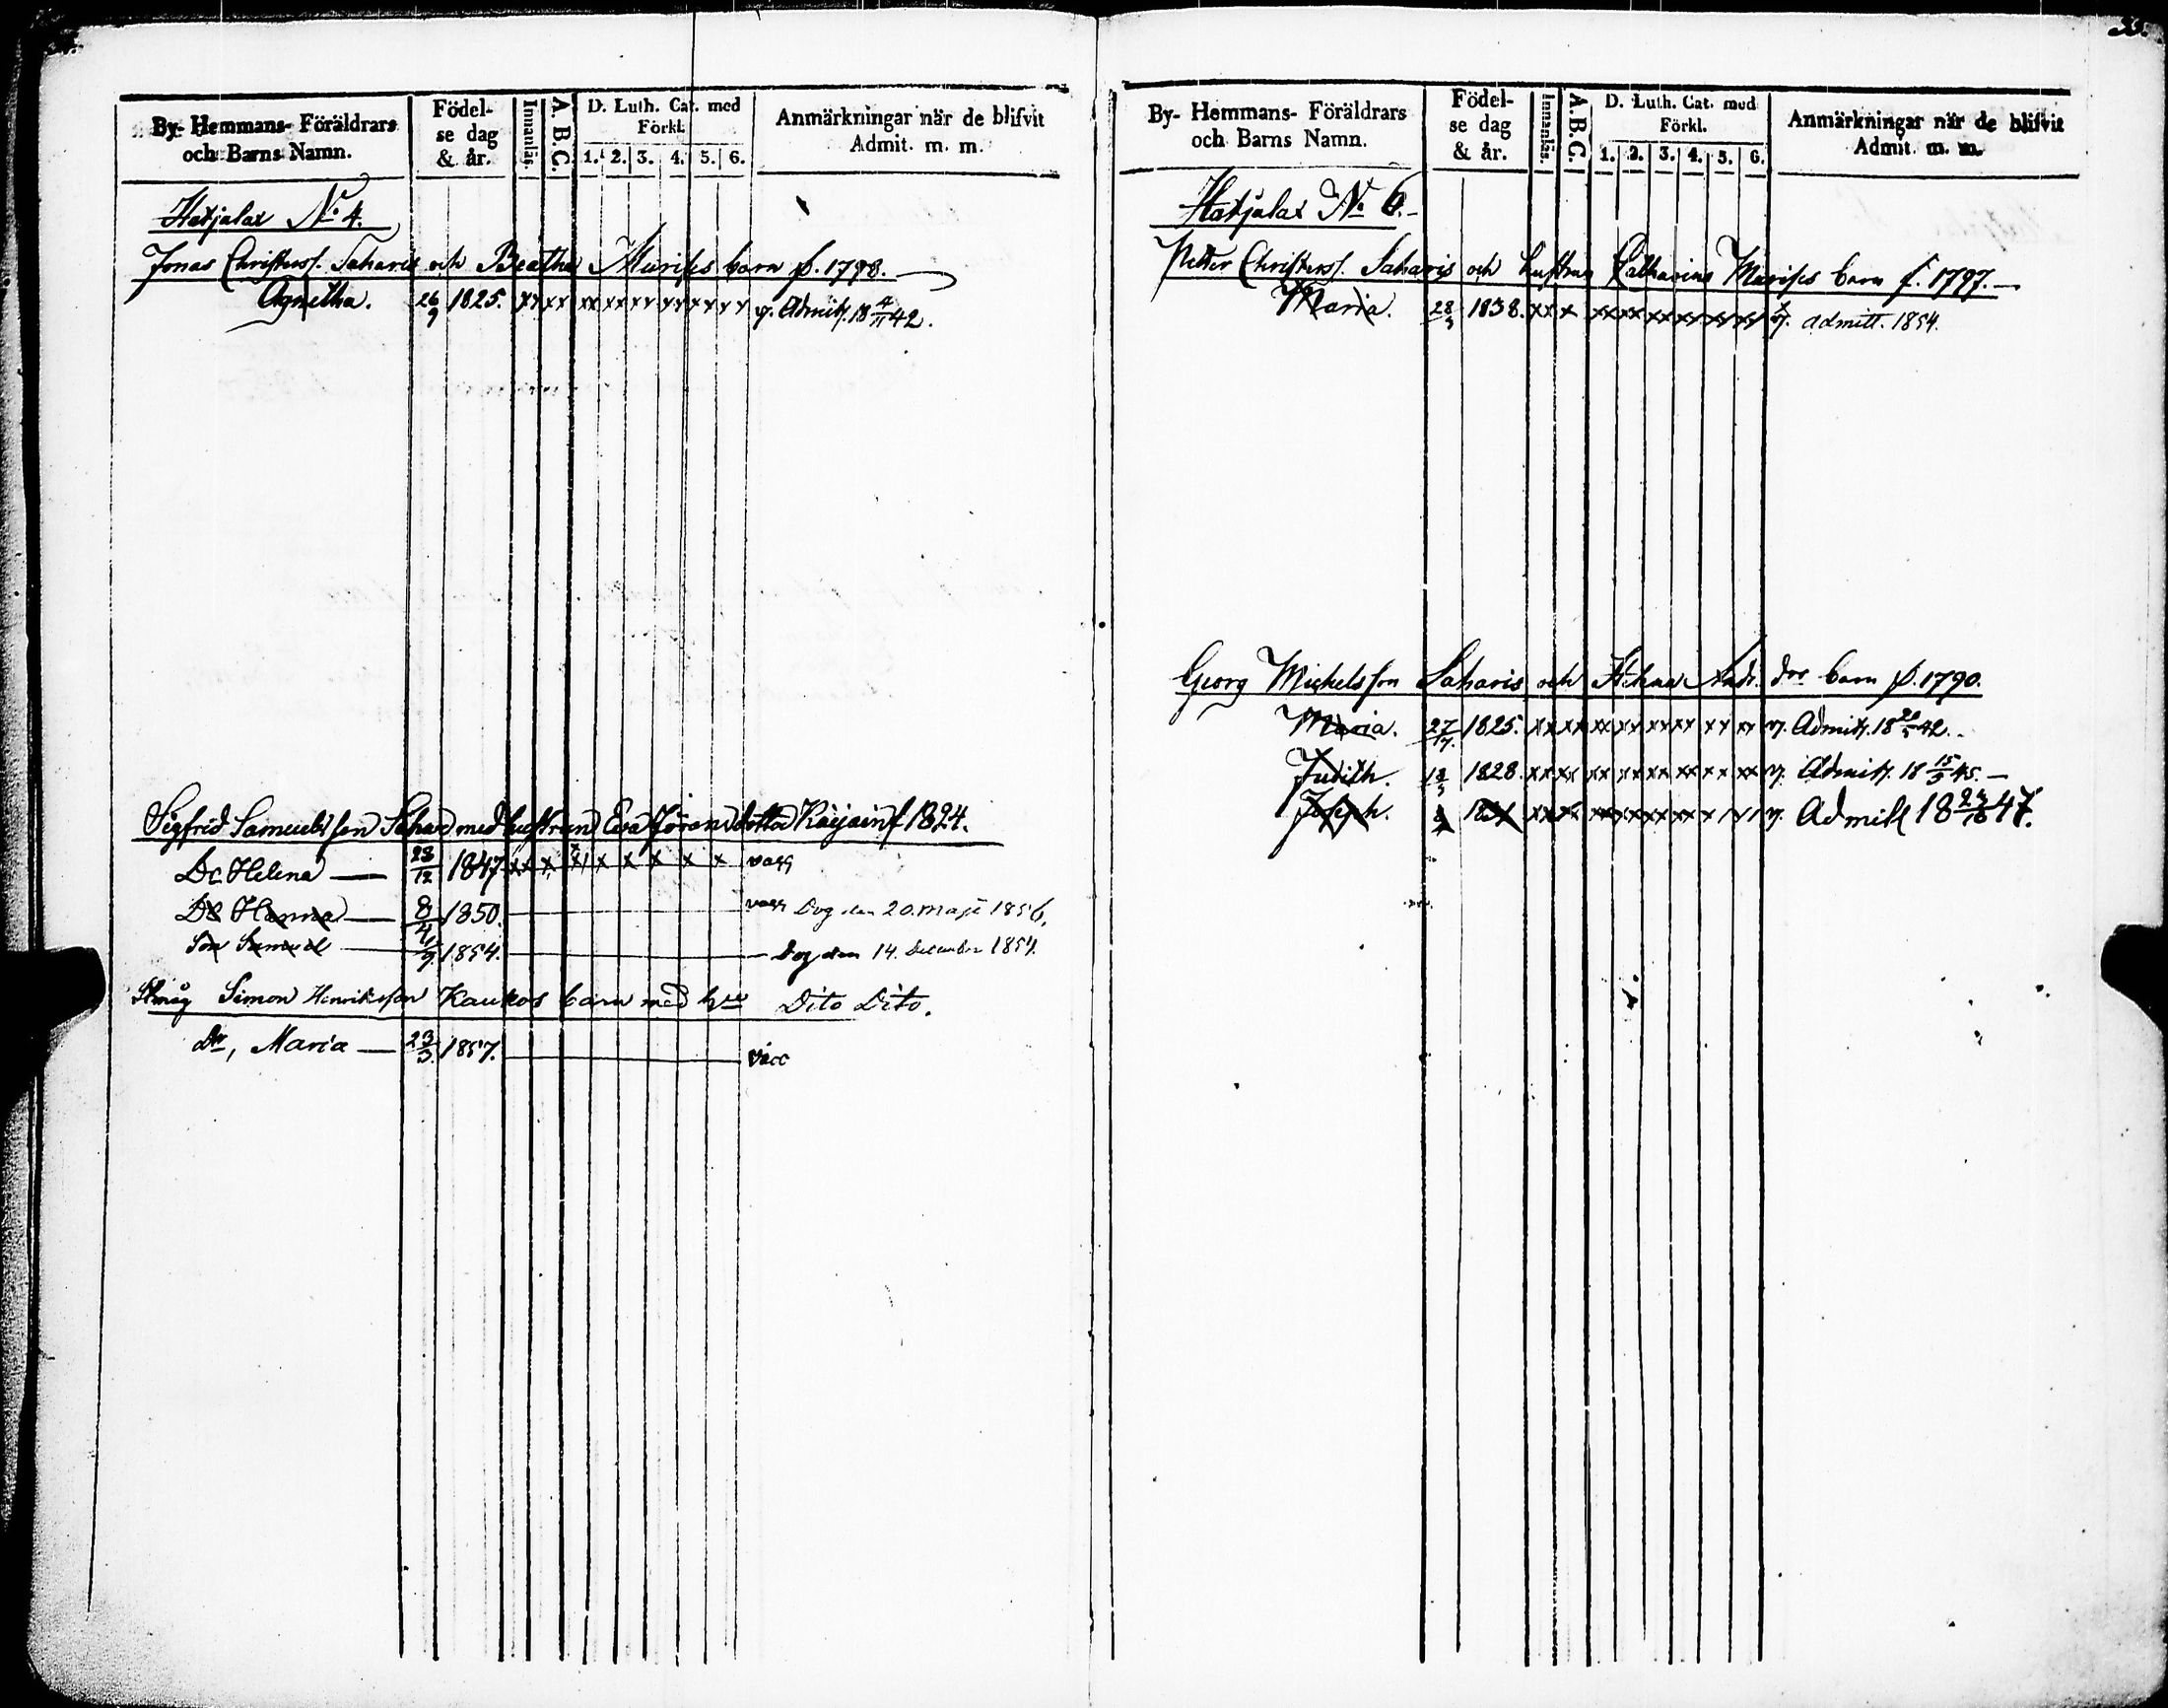 By- Hemmans- Föräldrars och Barns Namn.
Födelse dag & år.
Innanläs.
A. B. C.
D. Luth. Cat. med Förkl.
1. 2. 3. 4. 5. 6.
Anmärkningar när de blifvit Admit. m. m.
Hatjalax No. 4.
Jonas Christerss. Saharis och Beatha Murises barn f. 1798.
Agnetha. 26/9 1825. xx xx xx xx xx xx xx xx v. Admitt. 18 4/11 42.
Sigfrid Samuelsson Sahar med hustrun Eva Jöransdotter Kaijain f 1824.
Dr Helena — 23/12 1847 xx x x x x x x x vacc
Dr Hanna — 8/4 1850. vacc Dog den 20. maji 1856.
Son Samuel — 1/9 1854. Dog den 14. December 1854.
Simon Henriksson Kaukos barn med hu Dito Dito.
Dr, Maria — 23/3. 1857. vacc
By- Hemmans- Föräldrars och Barns Namn.
Födelse dag & år.
Innanläs.
A. B. C.
D. Luth. Cat. med Förkl.
1. 2. 3. 4. 5. 6.
Anmärkningar när de blifvit Admit. m. m.
Hatjalax No. 6.
Petter Christerss. Saharis och hustrus Catharina Murises barn f. 1797.
Maria. 28/3 1838. xx x xx xx xx xx xx xx v. admitt. 1854.
Georg Michelsson Saharis och Helena Andr. drs barn f. 1790.
Maria. 1825. xx xx xx xx xx xx xx xx v. Admitt. 18 42.
Judith. 1828. xx xx xx xx xx xx xx xx v. Admitt. 18 15/5 45.
Joseph. v. Admitt 18 47.